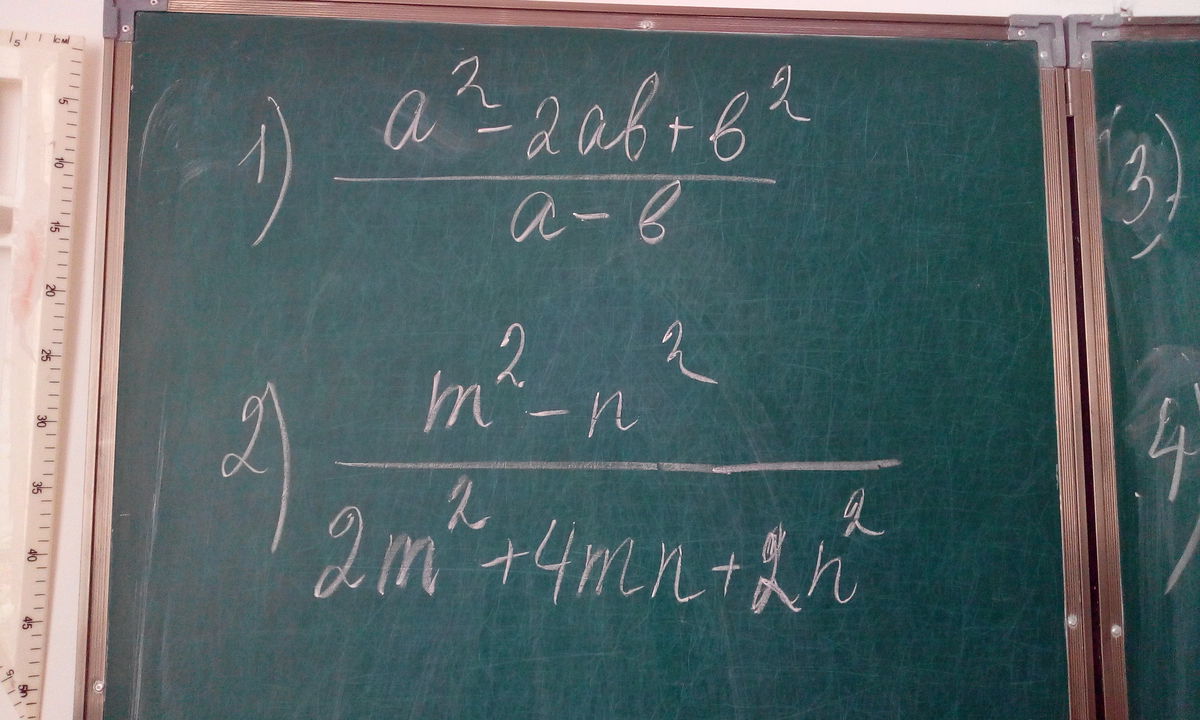 1) a² - 2ab + b²
a - b
2) m² - n²
2m² + 4mn + 2n²
3)
4)
см
5
5
10
15
20
25
30
35
40
45
50